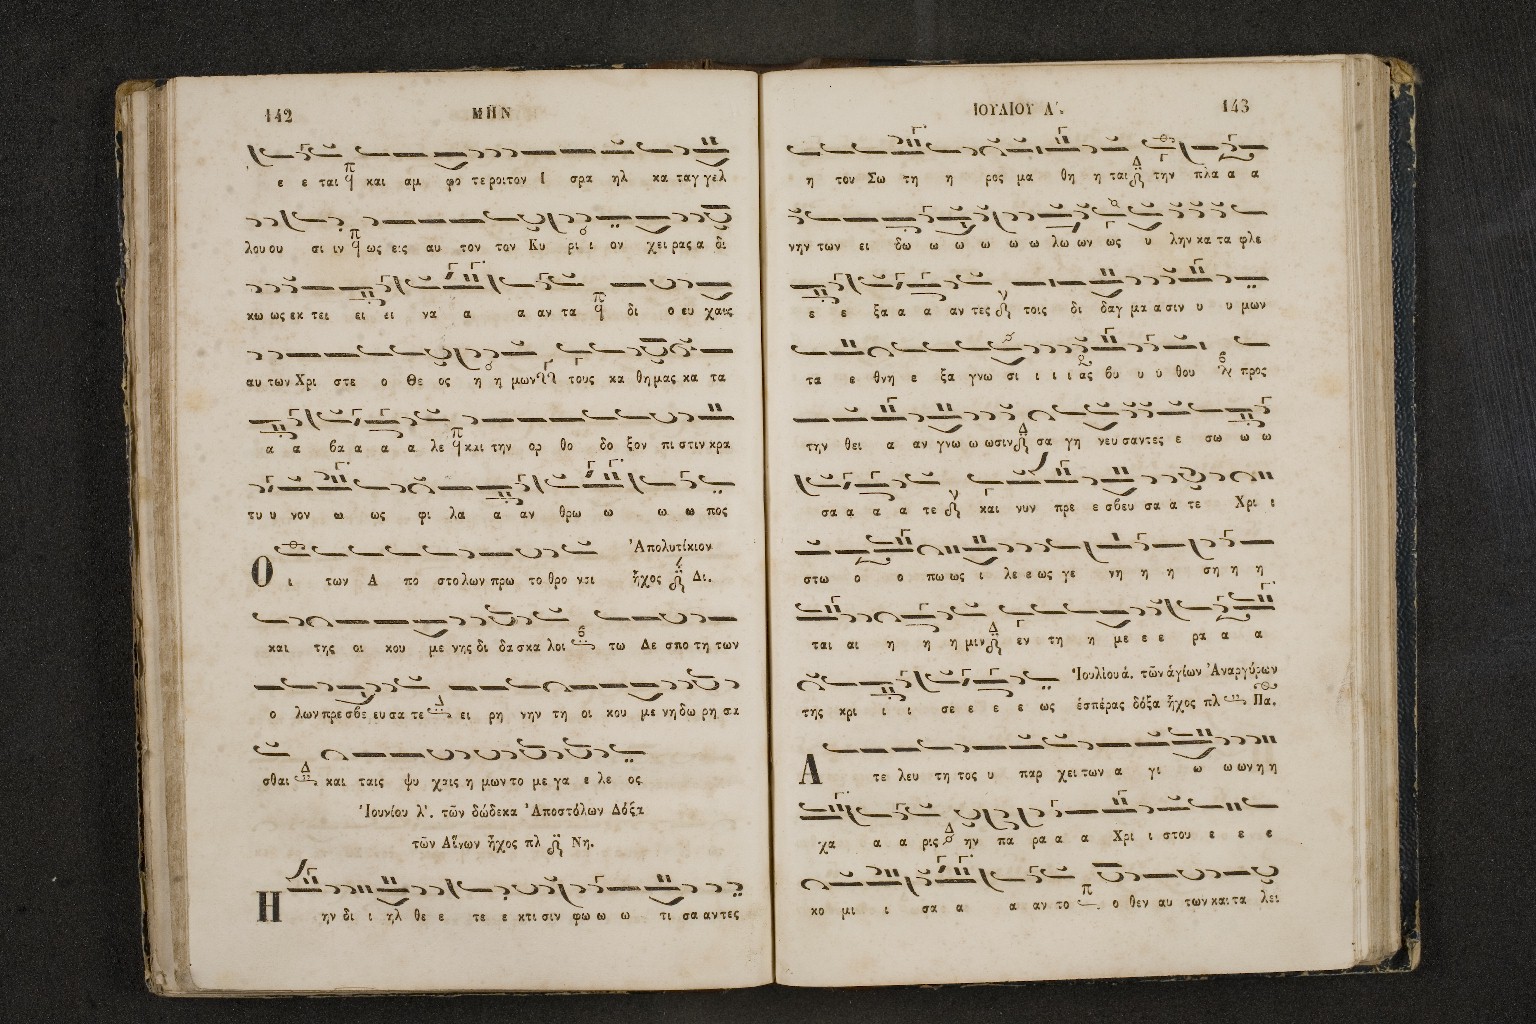 142 ΜΗΝ
ε ε ται και αμ φο τε ροι τον Ι σρα ηλ κα ταγ γελ
λου ου σι ιν ως εις αυ τον τον Κυ ρι ι ον χει ρας α δι
κω ως εκ τει ει ει να α α αν τα δι ο ευ χαις
αυ των Χρι στε ο Θε ος η η μων τους κα θη μας κα τα
α α βα α α α λε και την ορ θο δο ξον πι στιν κρα
τυ υ νον ω ως φι λα α αν θρω ω ω ω πος
Ἀπολυτίκιον
Ο ι των Α πο στο λων πρω το θρο νοι ἦχος Δι.
και της οι κου με νης δι δα σκα λοι τω Δε σπο τη των
ο λων πρε σβε ευ σα τε ει ρη νην τη οι κου με νη δω ρη σα
σθαι και ταις ψυ χαις η μων το με γα ε λε ος
Ἰουνίου λ'. τῶν δώδεκα Ἀποστόλων Δόξα
τῶν Αἴνων ἦχος πλ Νη.
Η ην δι ι ηλ θε ε τε ε κτι σιν φω ω ω τι σα αν τες
ΙΟΥΛΙΟΥ Α'. 143
η του Σω τη η ρος μα θη η ται την πλα α α
νην των ει δω ω ω ω ω ω λω ων ως υ λην κα τα φλε
ε ε ξα α α αν τες τοις δι δαγ μα α σιν υ υ μων
τα ε θνη ε ξα γνω σι ι ι ι ας βυ υ υ θου προς
την θει α αν γνω ω ω σιν σα γη νευ σαντες ε σω ω ω
σα α α α τε και νυν πρε ε σβευ σα α τε Χρι ι
στω ο ο πω ως ι λε ε ως γε νη η η ση η η
ται αι η η η μιν εν τη η με ε ε ρα α α
Ἰουλίου ά. τῶν ἁγίων Ἀναργύρων
της κρι ι ι σε ε ε ε ως ἑσπέρας δόξα ἦχος πλ Πα.
Α τε λευ τη τος υ παρ χει των α γι ω ω ων η η
χα α α ρις ην πα ρα α α Χρι ι στου ε ε ε
κο μι ι σα α α αν το ο θεν αυ των και τα λει